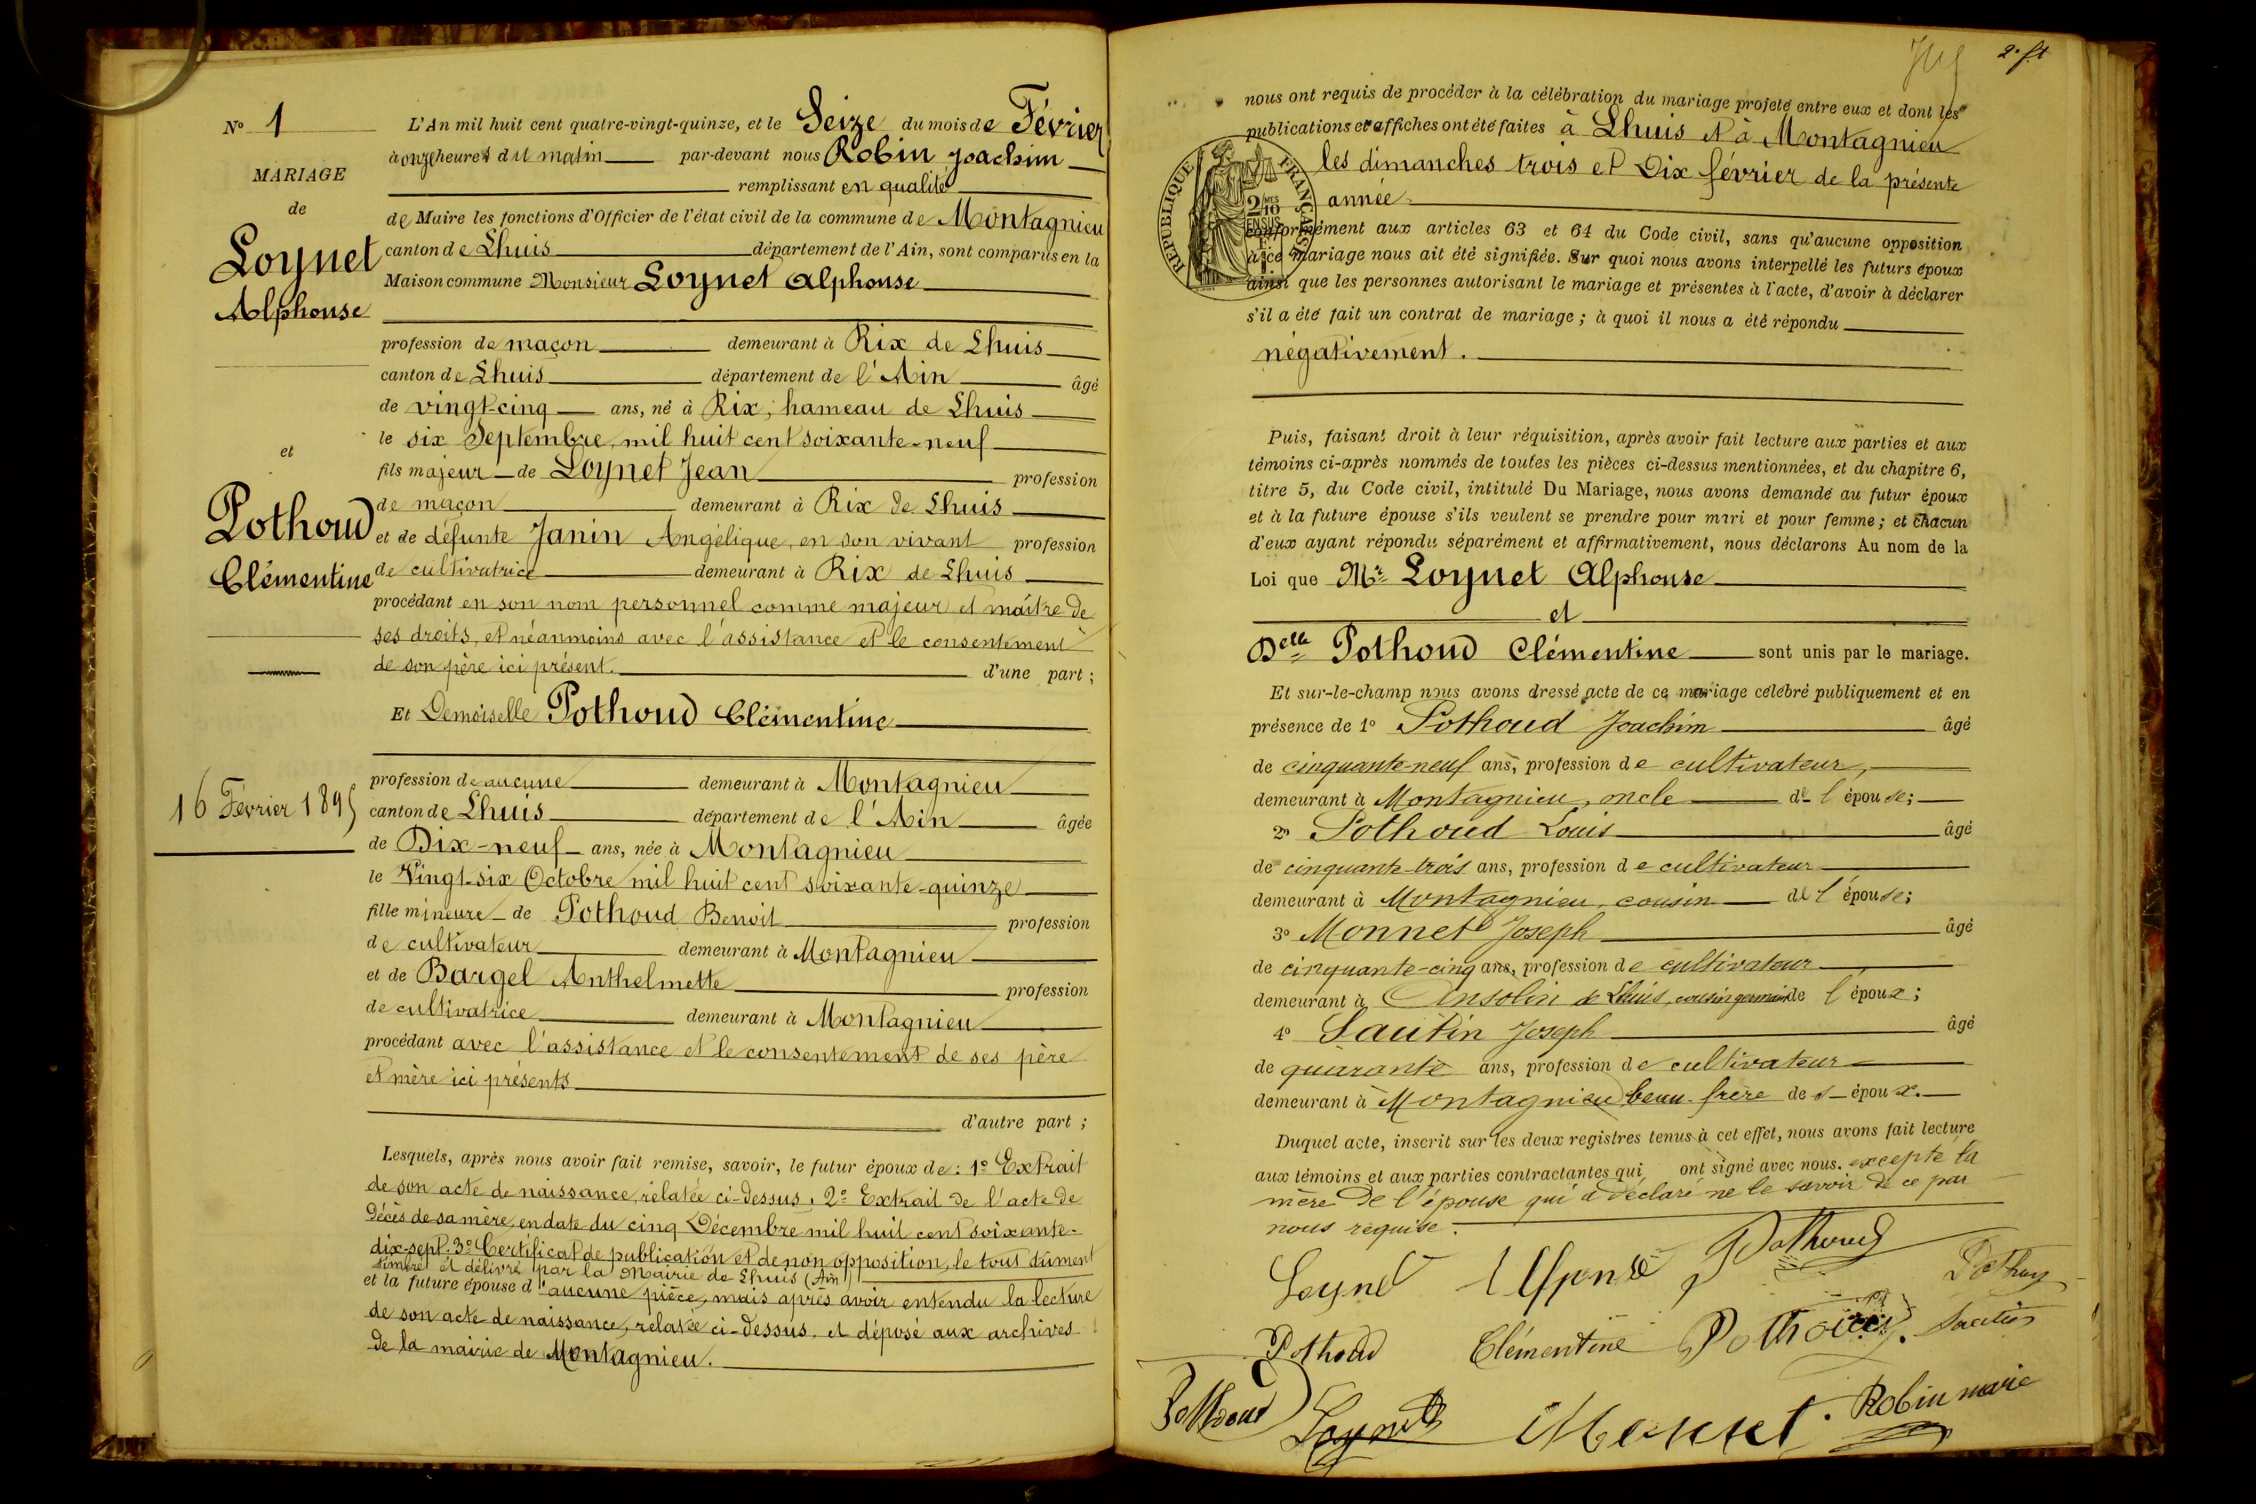 N° 1
MARIAGE
de
Loynet
Alphonse
et
Pothoud
Clémentine
16 Février 1895
L'An mil huit cent quatre-vingt-quinze, et le Seize du mois de Février
à onze heures du matin par-devant nous Robin Joachim
remplissant en qualité
de Maire les fonctions d'Officier de l'état civil de la commune de Montagnieu
canton de Lhuis département de l'Ain, sont comparus en la
Maison commune Monsieur Loynet Alphonse
profession de maçon demeurant à Rix de Lhuis
canton de Lhuis département de l'Ain âgé
de vingt-cinq ans, né à Rix, hameau de Lhuis
le six Septembre mil huit cent soixante-neuf
fils majeur de Loynet Jean profession
de maçon demeurant à Rix de Lhuis
et de défunte Janin Angélique, en son vivant profession
de cultivatrice demeurant à Rix de Lhuis
procédant en son nom personnel comme majeur et maître de
ses droits, et néanmoins avec l'assistance et le consentement
de son père ici présent. d'une part ;
Et Demoiselle Pothoud Clémentine
profession de aucune demeurant à Montagnieu
canton de Lhuis département de l'Ain âgée
de Dix-neuf ans, née à Montagnieu
le Vingt-six Octobre mil huit cent soixante-quinze
fille mineure de Pothoud Benoit profession
de cultivateur demeurant à Montagnieu
et de Bargel Anthelmette profession
de cultivatrice demeurant à Montagnieu
procédant avec l'assistance et le consentement de ses père
et mère ici présents
d'autre part ;
Lesquels, après nous avoir fait remise, savoir, le futur époux de : 1° Extrait
de son acte de naissance, relatée ci-dessus, 2° Extrait de l'acte de
Décès de sa mère, en date du cinq Décembre mil huit cent soixante-
dix-sept. 3° Certificat de publication et de non opposition, le tout dûment
timbré et délivré par la Mairie de Lhuis (Ain)
et la future épouse d'aucune pièce, mais après avoir entendu la lecture
de son acte de naissance, relatée ci-dessus, et déposé aux archives
de la mairie de Montagnieu.
2e ft
nous ont requis de procéder à la célébration du mariage projeté entre eux et dont les
publications et affiches ont été faites à Lhuis et à Montagnieu
les dimanches trois et Dix février de la présente
année
RÉPUBLIQUE FRANÇAISE
2/10 MES
EN SUS
conformément aux articles 63 et 64 du Code civil, sans qu'aucune opposition
à ce mariage nous ait été signifiée. Sur quoi nous avons interpellé les futurs époux
ainsi que les personnes autorisant le mariage et présentes à l'acte, d'avoir à déclarer
s'il a été fait un contrat de mariage ; à quoi il nous a été répondu
négativement.
Puis, faisant droit à leur réquisition, après avoir fait lecture aux parties et aux
témoins ci-après nommés de toutes les pièces ci-dessus mentionnées, et du chapitre 6,
titre 5, du Code civil, intitulé Du Mariage, nous avons demandé au futur époux
et à la future épouse s'ils veulent se prendre pour mari et pour femme ; et chacun
d'eux ayant répondu séparément et affirmativement, nous déclarons Au nom de la
Loi que Mr Loynet Alphonse
et
Delle Pothoud Clémentine sont unis par le mariage.
Et sur-le-champ nous avons dressé acte de ce mariage célébré publiquement et en
présence de 1° Pothoud Joachim âgé
de cinquante-neuf ans, profession de cultivateur,
demeurant à Montagnieu, oncle de l'épouse ;
2° Pothoud Louis âgé
de cinquante-trois ans, profession de cultivateur
demeurant à Montagnieu, cousin de l'épouse ;
3° Monnet Joseph âgé
de cinquante-cinq ans, profession de cultivateur
demeurant à Ansolin de Lhuis, cousin germain de l'époux ;
4° Sautin Joseph âgé
de quarante ans, profession de cultivateur
demeurant à Montagnieu beau-frère de l'époux.
Duquel acte, inscrit sur les deux registres tenus à cet effet, nous avons fait lecture
aux témoins et aux parties contractantes qui ont signé avec nous. excepté la
mère de l'épouse qui a déclaré ne le savoir de ce par
nous requise.
Loynet Alfonse Pothoud
Pothoud Clémentine Pothoud Sautin
Pothoud Loynet Monnet Robin maire